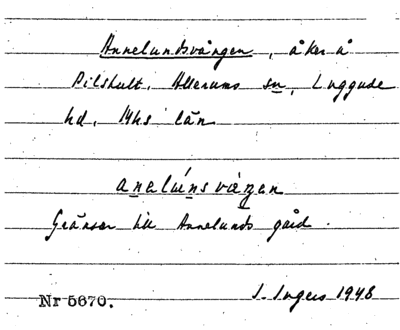 Annelundsvången, åker å
Pilshult, Allerums sn, Luggude
hd, Mhs län
anelúnsvæŋen
Gränsar till Annelunds gård.
Nr 5670. I. Ingers 1948